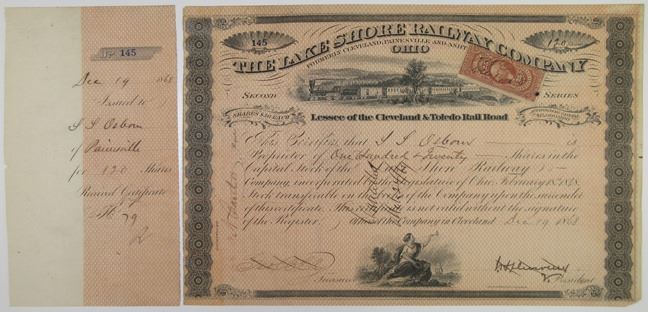 No 145
Dec 19 1868
Issued to
S S Osborn
of Painesville
for 120 Shares
Received Certificate
79
145
120
THE LAKE SHORE RAILWAY COMPANY
FORMERLY CLEVELAND, PAINESVILLE AND ASHT.
OHIO
SECOND SERIES
SHARES $50 EACH
Lessee of the Cleveland & Toledo Rail Road
This Certifies that S S Osborn is
Proprietor of One Hundred & Twenty Shares in the
Capital Stock of the Lake Shore Railway
Company, incorporated by the Legislature of Ohio February 18, 1848.
Stock transferable in the books of the Company upon the surrender
of this certificate. This certificate is not valid without the signature
of the Register. Attest the Company in Cleveland Dec 19 1868
Treasurer
President